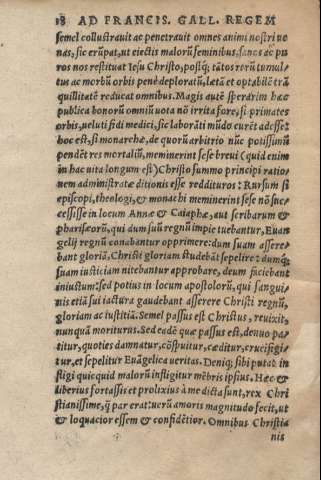 18 AD FRANCIS. GALL. REGEM
semel collustrauit ac penetrauit omnes animi nostri ue
nas, sic erũpat, ut eiectis maloru̅ seminibus, sanos ac pu
ros nos restituat Iesu Christo, posq̃; tãtos rerũ tumul⸗
tus ac morbũ orbis penè deploratũ, lætã et optabilẽ trã
quillitatẽ reducat omnibus. Magis autẽ sperarim hæc
publica bonorũ omniũ uota nõ irrita fore, si primates
orbis, ueluti fidi medici, sic laborãti mũdo curẽ adesse:
hoc est, si monarchæ, de quorũ arbitrio nũc potissimũ
pendẽt res mortaliũ, meminerint sese breui (quid enim
in hac uita longum est) Christo summo principi ratio⸗
nem administratæ ditionis esse reddituros: Rursum si
episcopi, theologi, & monachi meminerint sese nõ suc⸗
cessisse in locum Annæ & Caiaphæ, aut scribarum &
pharisæorũ, qui dum suũ regnũ impie tuebantur, Euan
gelij regnũ conabantur opprimere: dum suam assere⸗
bant gloriã, Christi gloriam studebãt sepelire: dumq̃;
suam iusticiam nitebantur approbare, deum faciebant
iniustum: sed potius in locum apostolorũ, qui sangui⸗
nis etiã sui iactura gaudebant asserere Christi regnũ,
gloriam ac iustitiã. Semel passus est Christus, reuixit,
nunquã moriturus. Sed eadẽ quæ passus est, denuo pa⸗
titur, quoties damnatur, cõspuitur, cæditur, crucifigi⸗
tur, et sepelitur Euãgelica ueritas. Deniq; sibi putat in
fligi quicquid malorũ infligitur mẽbris ipsius. Hæc &
liberius fortassis et prolixius à me dicta sunt, rex Chri
stianissime, q̃ par erat: uerũ amoris magnitudo fecit, ut
& loquacior essem & confidẽtior. Omnibus Christia
nis